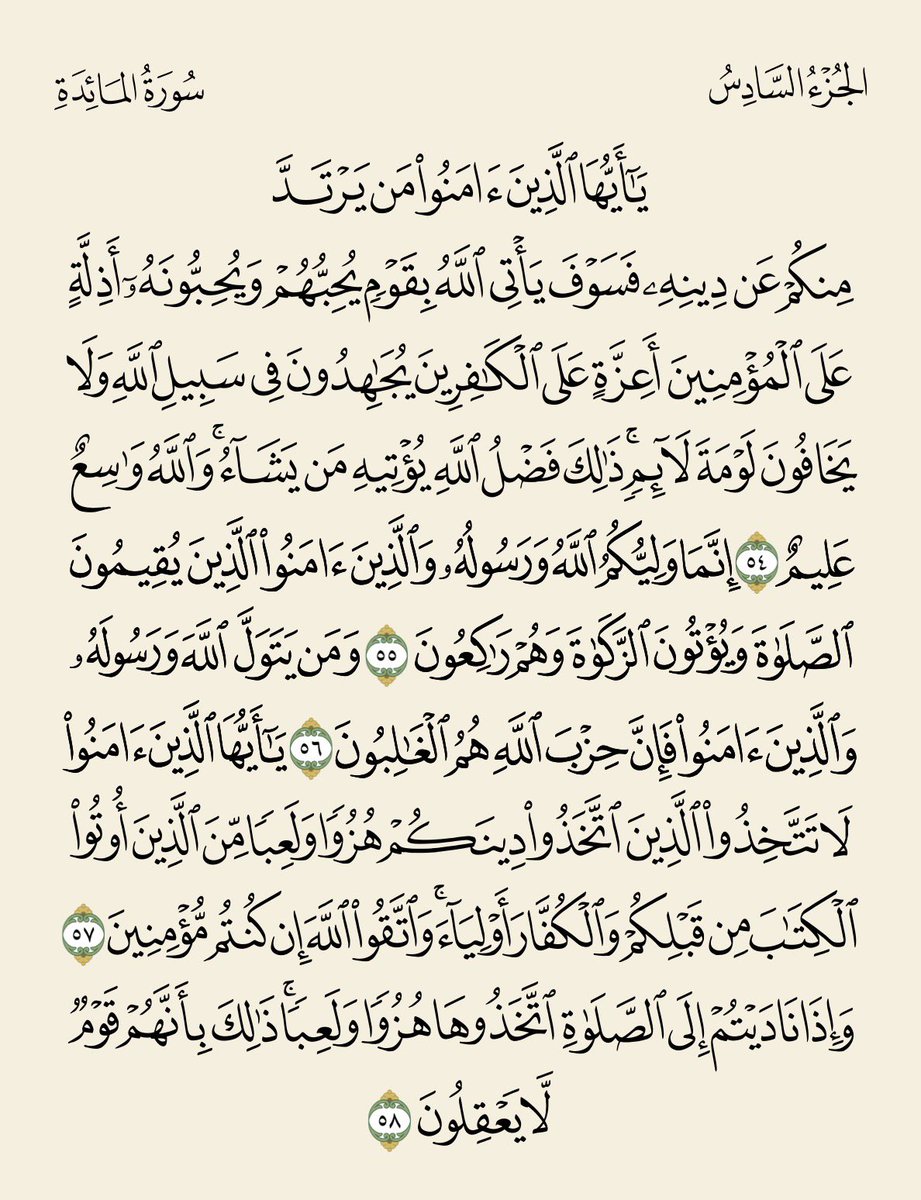 الجُزْءُ السَّادِسُ
سُورَةُ المَائِدَةِ
يَٰٓأَيُّهَا ٱلَّذِينَ ءَامَنُوا۟ مَن يَرْتَدَّ
مِنكُمْ عَن دِينِهِۦ فَسَوْفَ يَأْتِى ٱللَّهُ بِقَوْمٍ يُحِبُّهُمْ وَيُحِبُّونَهُۥٓ أَذِلَّةٍ
عَلَى ٱلْمُؤْمِنِينَ أَعِزَّةٍ عَلَى ٱلْكَٰفِرِينَ يُجَٰهِدُونَ فِى سَبِيلِ ٱللَّهِ وَلَا
يَخَافُونَ لَوْمَةَ لَآئِمٍ ۚ ذَٰلِكَ فَضْلُ ٱللَّهِ يُؤْتِيهِ مَن يَشَآءُ ۚ وَٱللَّهُ وَٰسِعٌ
عَلِيمٌ ٥٤ إِنَّمَا وَلِيُّكُمُ ٱللَّهُ وَرَسُولُهُۥ وَٱلَّذِينَ ءَامَنُوا۟ ٱلَّذِينَ يُقِيمُونَ
ٱلصَّلَوٰةَ وَيُؤْتُونَ ٱلزَّكَوٰةَ وَهُمْ رَٰكِعُونَ ٥٥ وَمَن يَتَوَلَّ ٱللَّهَ وَرَسُولَهُۥ
وَٱلَّذِينَ ءَامَنُوا۟ فَإِنَّ حِزْبَ ٱللَّهِ هُمُ ٱلْغَٰلِبُونَ ٥٦ يَٰٓأَيُّهَا ٱلَّذِينَ ءَامَنُوا۟
لَا تَتَّخِذُوا۟ ٱلَّذِينَ ٱتَّخَذُوا۟ دِينَكُمْ هُزُوًا وَلَعِبًا مِّنَ ٱلَّذِينَ أُوتُوا۟
ٱلْكِتَٰبَ مِن قَبْلِكُمْ وَٱلْكُفَّارَ أَوْلِيَآءَ ۚ وَٱتَّقُوا۟ ٱللَّهَ إِن كُنتُم مُّؤْمِنِينَ ٥٧
وَإِذَا نَادَيْتُمْ إِلَى ٱلصَّلَوٰةِ ٱتَّخَذُوهَا هُزُوًا وَلَعِبًا ۚ ذَٰلِكَ بِأَنَّهُمْ قَوْمٌ
لَّا يَعْقِلُونَ ٥٨